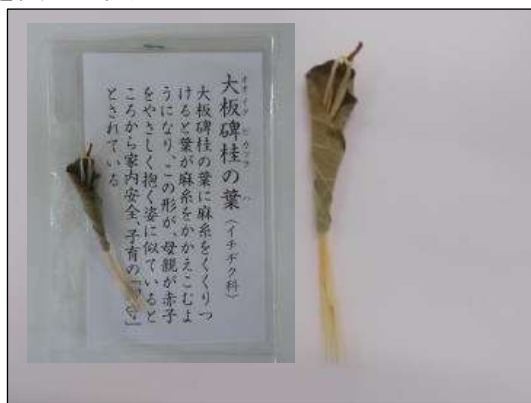 オオイタビカツラ ハ
大板碑桂の葉（イチヂク科）
大板碑桂の葉に麻糸をくくりつ
けると葉が麻糸をかかえこむよ
うになり、この形が、母親が赤子
をやさしく抱く姿に似ていると
ころから家内安全、子育の「
とされている